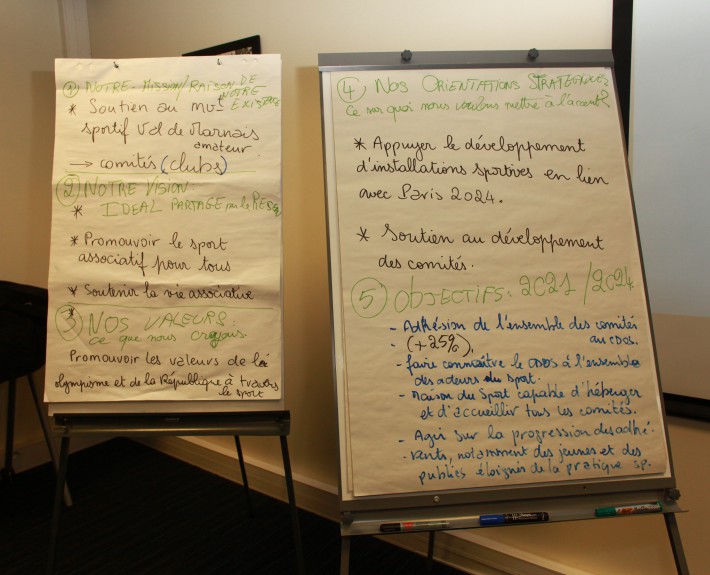 ① NOTRE MISSION/RAISON DE
NOTRE
EXISTENCE
* Soutien au mvt
sportif Val de Marnais
amateur
→ comités (clubs)
② NOTRE VISION:
* IDEAL PARTAGE par le
* Promouvoir le sport
associatif pour tous
* Soutenir la vie associative
*
③ NOS VALEURS:
ce que nous croyons.
Promouvoir les valeurs de l'
olympisme et de la République à travers
le sport
④ NOS ORIENTATIONS STRATEGIQUES
Ce sur quoi nous voulons mettre à l'accent
* Appuyer le développement
d'installations sportives en lien
avec Paris 2024.
* Soutien au développement
des comités.
⑤ OBJECTIFS: 2021/2024
- Adhésion de l'ensemble des comités
au CDOS.
- (+25%),
- faire connaître le CDOS à l'ensemble
des acteurs du sport.
- Maison du Sport capable d'héberger
et d'accueillir tous les comités.
- Agir sur la progression des adhé-
- rents, notamment des jeunes et des
publics éloignés de la pratique sp.